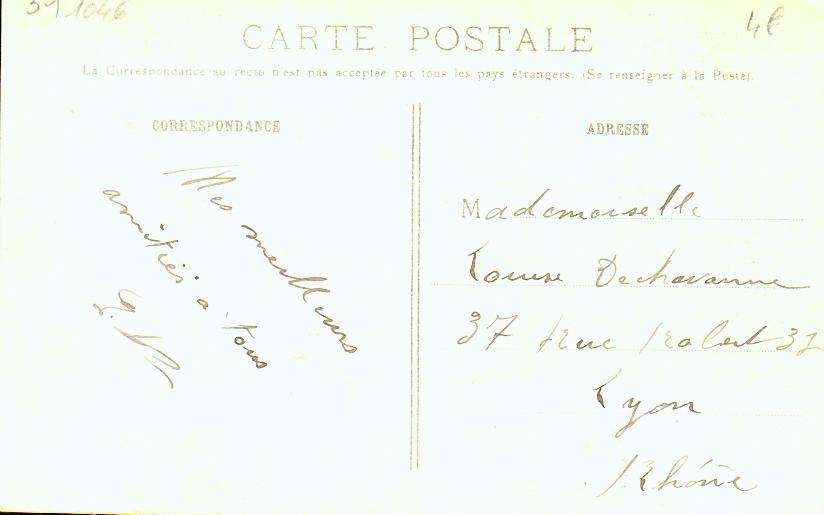 1046
4€
CARTE POSTALE
La Correspondance au recto n'est pas acceptée par tous les pays étrangers. (Se renseigner à la Poste).
CORRESPONDANCE
Mes meilleurs
amitiés à tous
ADRESSE
Mademoiselle
Louise Dechavanne
37 Rue 37
Lyon
Rhône